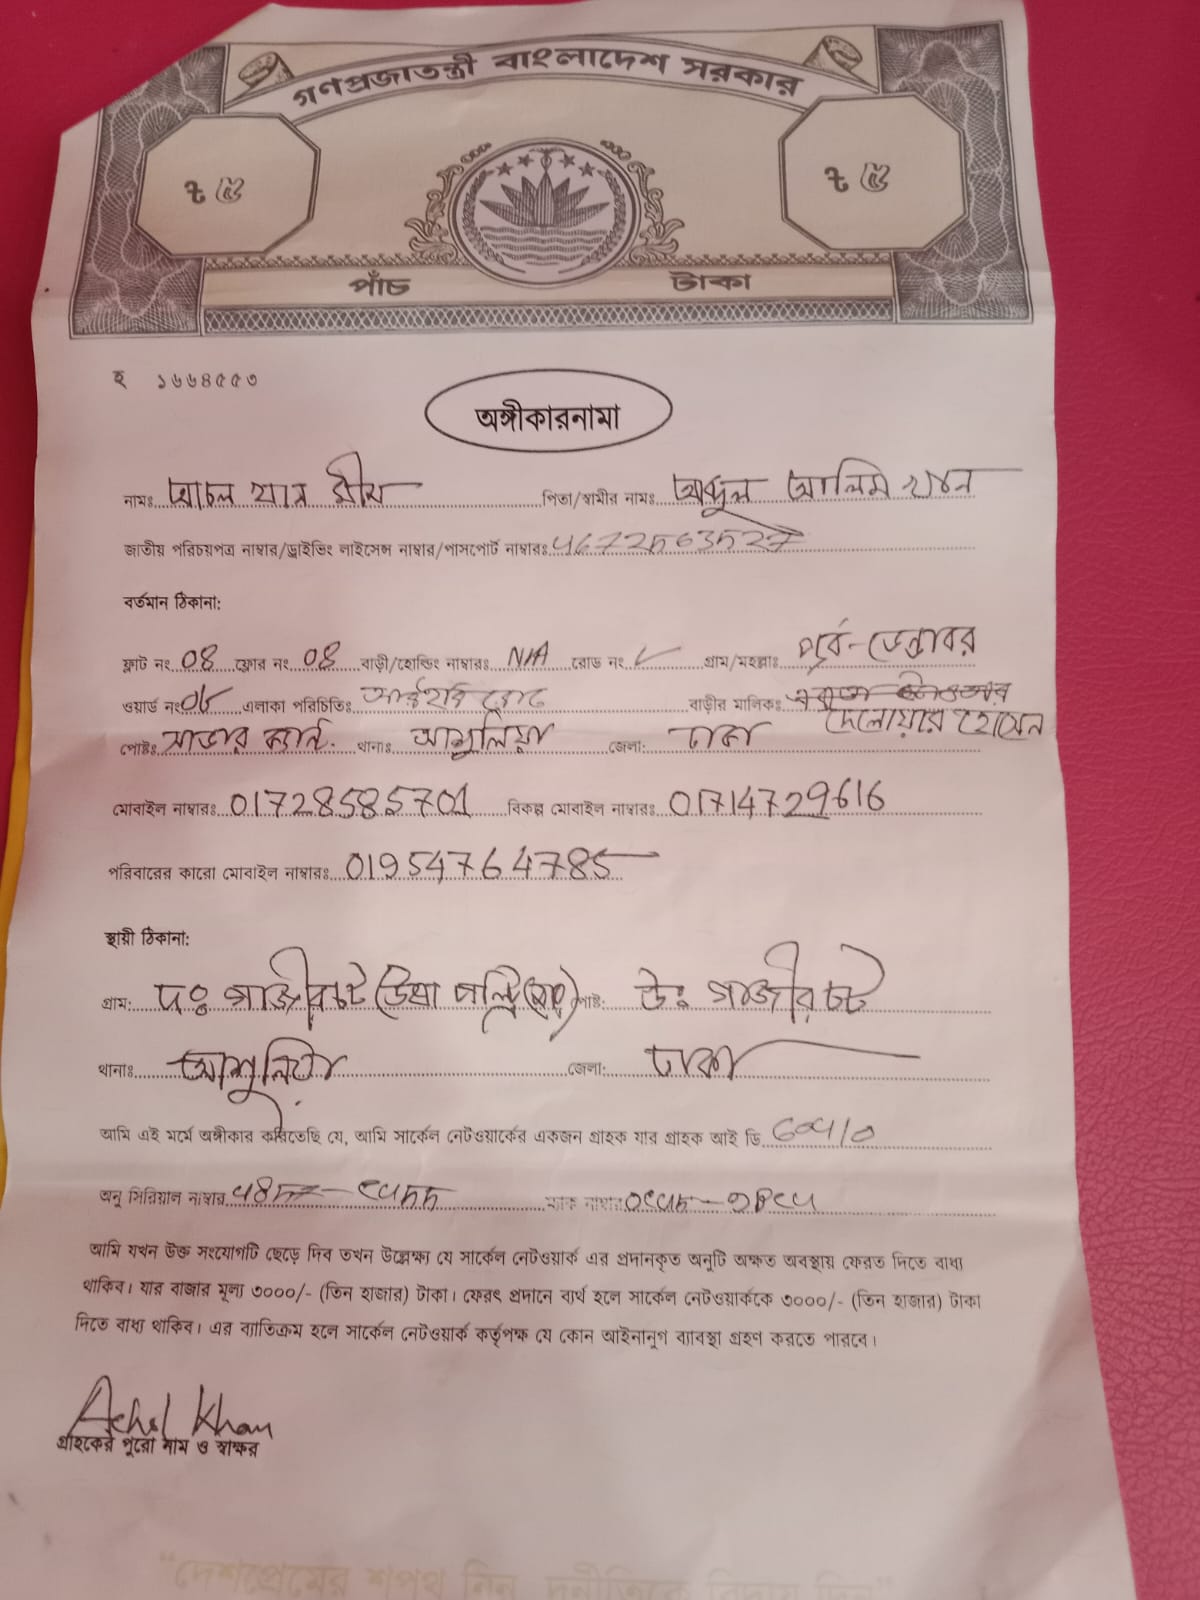 গণপ্রজাতন্ত্রী বাংলাদেশ সরকার
৳ ৫ ৳ ৫
পাঁচ টাকা
হ ১৬৬৪৫৫৩
অঙ্গীকারনামা
নামঃ আচল খান পিতা/স্বামীর নামঃ আব্দুল আলিম খান
জাতীয় পরিচয়পত্র নাম্বার/ড্রাইভিং লাইসেন্স নাম্বার/পাসপোর্ট নাম্বারঃ
বর্তমান ঠিকানা:
ফ্লাট নং 08 ফ্লোর নং 08 বাড়ী/হোল্ডিং নাম্বারঃ N/A রোড নং গ্রাম/মহল্লাঃ পূর্ব-ডেন্ডাবর
ওয়ার্ড নং এলাকা পরিচিতিঃ রোড বাড়ীর মালিকঃ দেলোয়ার হোসেন
পোষ্টঃ সাভার ক্যান্ট. থানাঃ আশুলিয়া জেলা: ঢাকা
মোবাইল নাম্বারঃ 01728585701 বিকল্প মোবাইল নাম্বারঃ 01714729616
পরিবারের কারো মোবাইল নাম্বারঃ 01954764785
স্থায়ী ঠিকানা:
গ্রাম: দঃ গাজীরচট পোষ্ট: উঃ গাজীরচট
থানাঃ আশুলিয়া জেলা: ঢাকা
আমি এই মর্মে অঙ্গীকার করিতেছি যে, আমি সার্কেল নেটওয়ার্কের একজন গ্রাহক যার গ্রাহক আই ডি
অনু সিরিয়াল নাম্বার ম্যাক নাম্বার
আমি যখন উক্ত সংযোগটি ছেড়ে দিব তখন উল্লেক্ষ্য যে সার্কেল নেটওয়ার্ক এর প্রদানকৃত অনুটি অক্ষত অবস্থায় ফেরত দিতে বাধ্য
থাকিব। যার বাজার মূল্য ৩০০০/- (তিন হাজার) টাকা। ফেরৎ প্রদানে ব্যর্থ হলে সার্কেল নেটওয়ার্ককে ৩০০০/- (তিন হাজার) টাকা
দিতে বাধ্য থাকিব। এর ব্যাতিক্রম হলে সার্কেল নেটওয়ার্ক কর্তৃপক্ষ যে কোন আইনানুগ ব্যাবস্থা গ্রহণ করতে পারবে।
Achol Khan
গ্রাহকের পুরো নাম ও স্বাক্ষর
"দেশপ্রেমের শপথ নিন, দুর্নীতিকে বিদায় দিন"